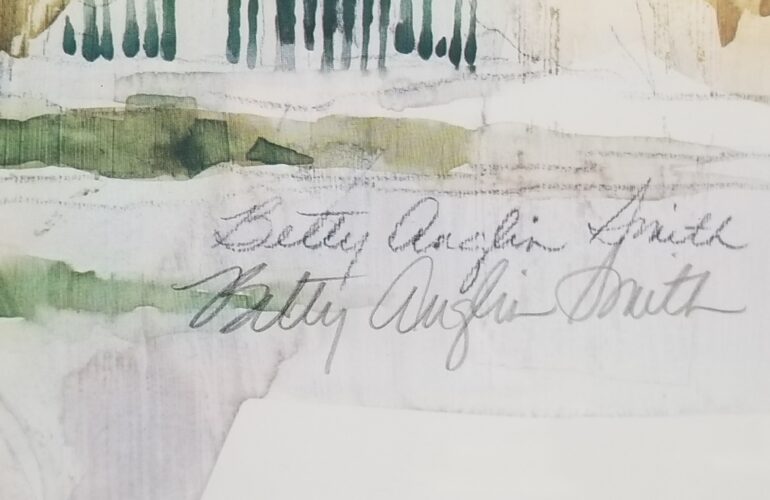 Betty Anglin Smith
Betty Anglin Smith